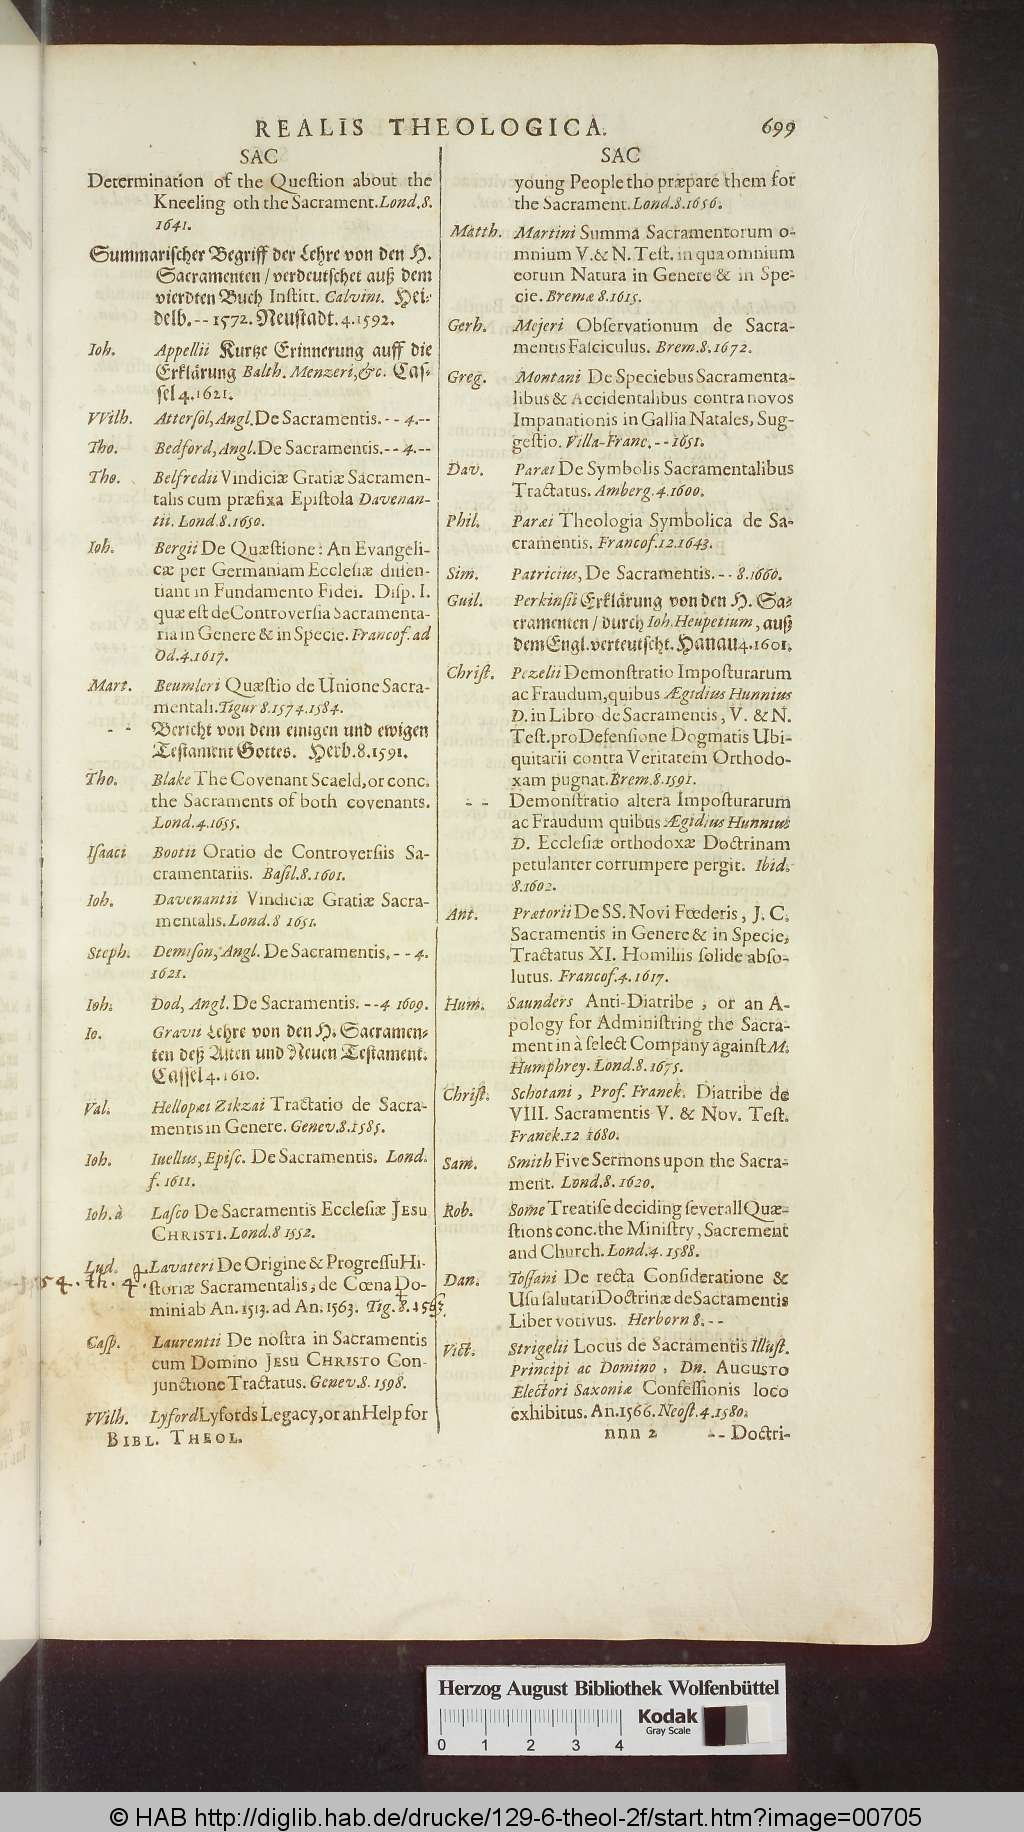 REALIS THEOLOGICA. 699
SAC
Determination of the Queſtion about the
Kneeling oth the Sacrament. Lond. 8.
1641.
Summariſcher Begriff der Lehre von den H.
Sacramenten / verdeutſchet auß dem
vierdten Buch Inſtitt. Calvini. Hei-
delb. -- 1572. Neuſtadt. 4. 1592.
Ioh. Appellii Kurtze Erinnerung auff die
Erklärung Balth. Menzeri, &c. Caſ-
ſel 4. 1621.
VVilh. Atterſol, Angl. De Sacramentis. -- 4. --
Tho. Bedford, Angl. De Sacramentis. -- 4. --
Tho. Belfredii Vindiciæ Gratiæ Sacramen-
talis cum præfixa Epiſtola Davenan-
tii. Lond. 8. 1650.
Ioh. Bergii De Quæſtione: An Evangeli-
cæ per Germaniam Eccleſiæ diſſen-
tiant in Fundamento Fidei. Diſp. I.
quæ eſt de Controverſia Sacramenta-
ria in Genere & in Specie. Francof. ad
Od. 4. 1617.
Mart. Beumleri Quæſtio de Unione Sacra-
mentali. Tigur 8. 1574. 1584.
- - Bericht von dem einigen und ewigen
Teſtament Gottes. Herb. 8. 1591.
Tho. Blake The Covenant Scaeld, or conc.
the Sacraments of both covenants.
Lond. 4. 1655.
Iſaaci Bootii Oratio de Controverſiis Sa-
cramentariis. Baſil. 8. 1601.
Ioh. Davenantii Vindiciæ Gratiæ Sacra-
mentalis. Lond. 8 1651.
Steph. Demiſon, Angl. De Sacramentis. -- 4.
1621.
Ioh. Dod, Angl. De Sacramentis. -- 4 1609.
Io. Gravii Lehre von den H. Sacramen-
ten deß Alten und Neuen Teſtament.
Caſſel 4. 1610.
Val. Hellopæi Zikzai Tractatio de Sacra-
mentis in Genere. Genev. 8. 1585.
Ioh. Iuellus, Epiſc. De Sacramentis. Lond.
f. 1611.
Ioh. à Laſco De Sacramentis Eccleſiæ JESU
CHRISTI. Lond. 8 1552.
Lud. Lavateri De Origine & Progreſſu Hi-
54. th. 4. ſtoriæ Sacramentalis, de Cœna Do-
mini ab An. 1513. ad An. 1563. Tig. 8. 1563.
Caſp. Laurentii De noſtra in Sacramentis
cum Domino JESU CHRISTO Con-
junctione Tractatus. Genev. 8. 1598.
VVilh. Lyford Lyfords Legacy, or an Help for
BIBL. THEOL.
SAC
young People tho præpare them for
the Sacrament. Lond. 8. 1656.
Matth. Martini Summa Sacramentorum o-
mnium V. & N. Teſt. in qua omnium
eorum Natura in Genere & in Spe-
cie. Bremæ 8. 1615.
Gerh. Mejeri Obſervationum de Sacra-
mentis Faſciculus. Brem. 8. 1672.
Greg. Montani De Speciebus Sacramenta-
libus & Accidentalibus contra novos
Impanationis in Gallia Natales, Sug-
geſtio. Villa-Franc. -- 1651.
Dav. Paræi De Symbolis Sacramentalibus
Tractatus. Amberg. 4. 1600.
Phil. Paræi Theologia Symbolica de Sa-
cramentis. Francof. 12. 1643.
Sim. Patricius, De Sacramentis. -- 8. 1660.
Guil. Perkinſii Erklärung von den H. Sa-
cramenten / durch Ioh. Heupetium, auß
dem Engl. verteutſcht. Hanau 4. 1601.
Chriſt. Pezelii Demonſtratio Impoſturarum
ac Fraudum, quibus Ægidius Hunnius
D. in Libro de Sacramentis, V. & N.
Teſt. pro Defenſione Dogmatis Ubi-
quitarii contra Veritatem Orthodo-
xam pugnat. Brem. 8. 1591.
- - Demonſtratio altera Impoſturarum
ac Fraudum quibus Ægidius Hunnius
D. Eccleſiæ orthodoxæ Doctrinam
petulanter corrumpere pergit. Ibid.
8. 1602.
Ant. Prætorii De SS. Novi Fœderis, J. C.
Sacramentis in Genere & in Specie,
Tractatus XI. Homiliis ſolide abſo-
lutus. Francof. 4. 1617.
Hum. Saunders Anti-Diatribe, or an A-
pology for Adminiſtring the Sacra-
ment in à ſelect Company againſt M.
Humphrey. Lond. 8. 1675.
Chriſt. Schotani, Prof. Franek. Diatribe de
VIII. Sacramentis V. & Nov. Teſt.
Franek. 12 1680.
Sam. Smith Five Sermons upon the Sacra-
ment. Lond. 8. 1620.
Rob. Some Treatiſe deciding ſeverall Quæ-
ſtions conc. the Miniſtry, Sacrement
and Church. Lond. 4. 1588.
Dan. Toſſani De recta Conſideratione &
Uſu ſalutari Doctrinæ de Sacramentis
Liber votivus. Herborn 8. --
Vict. Strigelii Locus de Sacramentis Illuſt.
Principi ac Domino, Dn. AUGUSTO
Electori Saxoniæ Confeſſionis loco
exhibitus. An. 1566. Neoſt. 4. 1580.
nnn 2 -- Doctri-
Herzog August Bibliothek Wolfenbüttel
Kodak
Gray Scale
0 1 2 3 4
© HAB http://diglib.hab.de/drucke/129-6-theol-2f/start.htm?image=00705